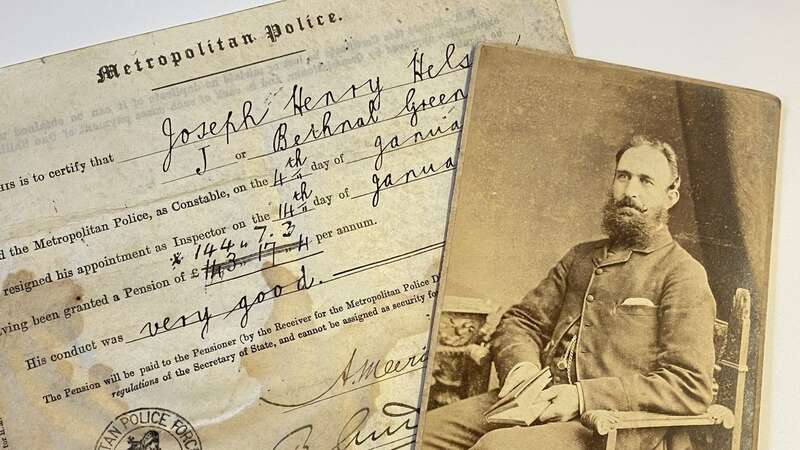 Metropolitan Police.
HIS is to certify that Joseph Henry Hels
J or Bethnal Green
d the Metropolitan Police, as Constable, on the 4th day of Janua
resigned his appointment as Inspector on the 14th day of Janua
ving been granted a Pension of £ 144 " 7. 3 per annum.
His conduct was very good.
The Pension will be paid to the Pensioner (by the Receiver for the Metropolitan Police D
regulations of the Secretary of State, and cannot be assigned as security for
TAN POLICE FORCE